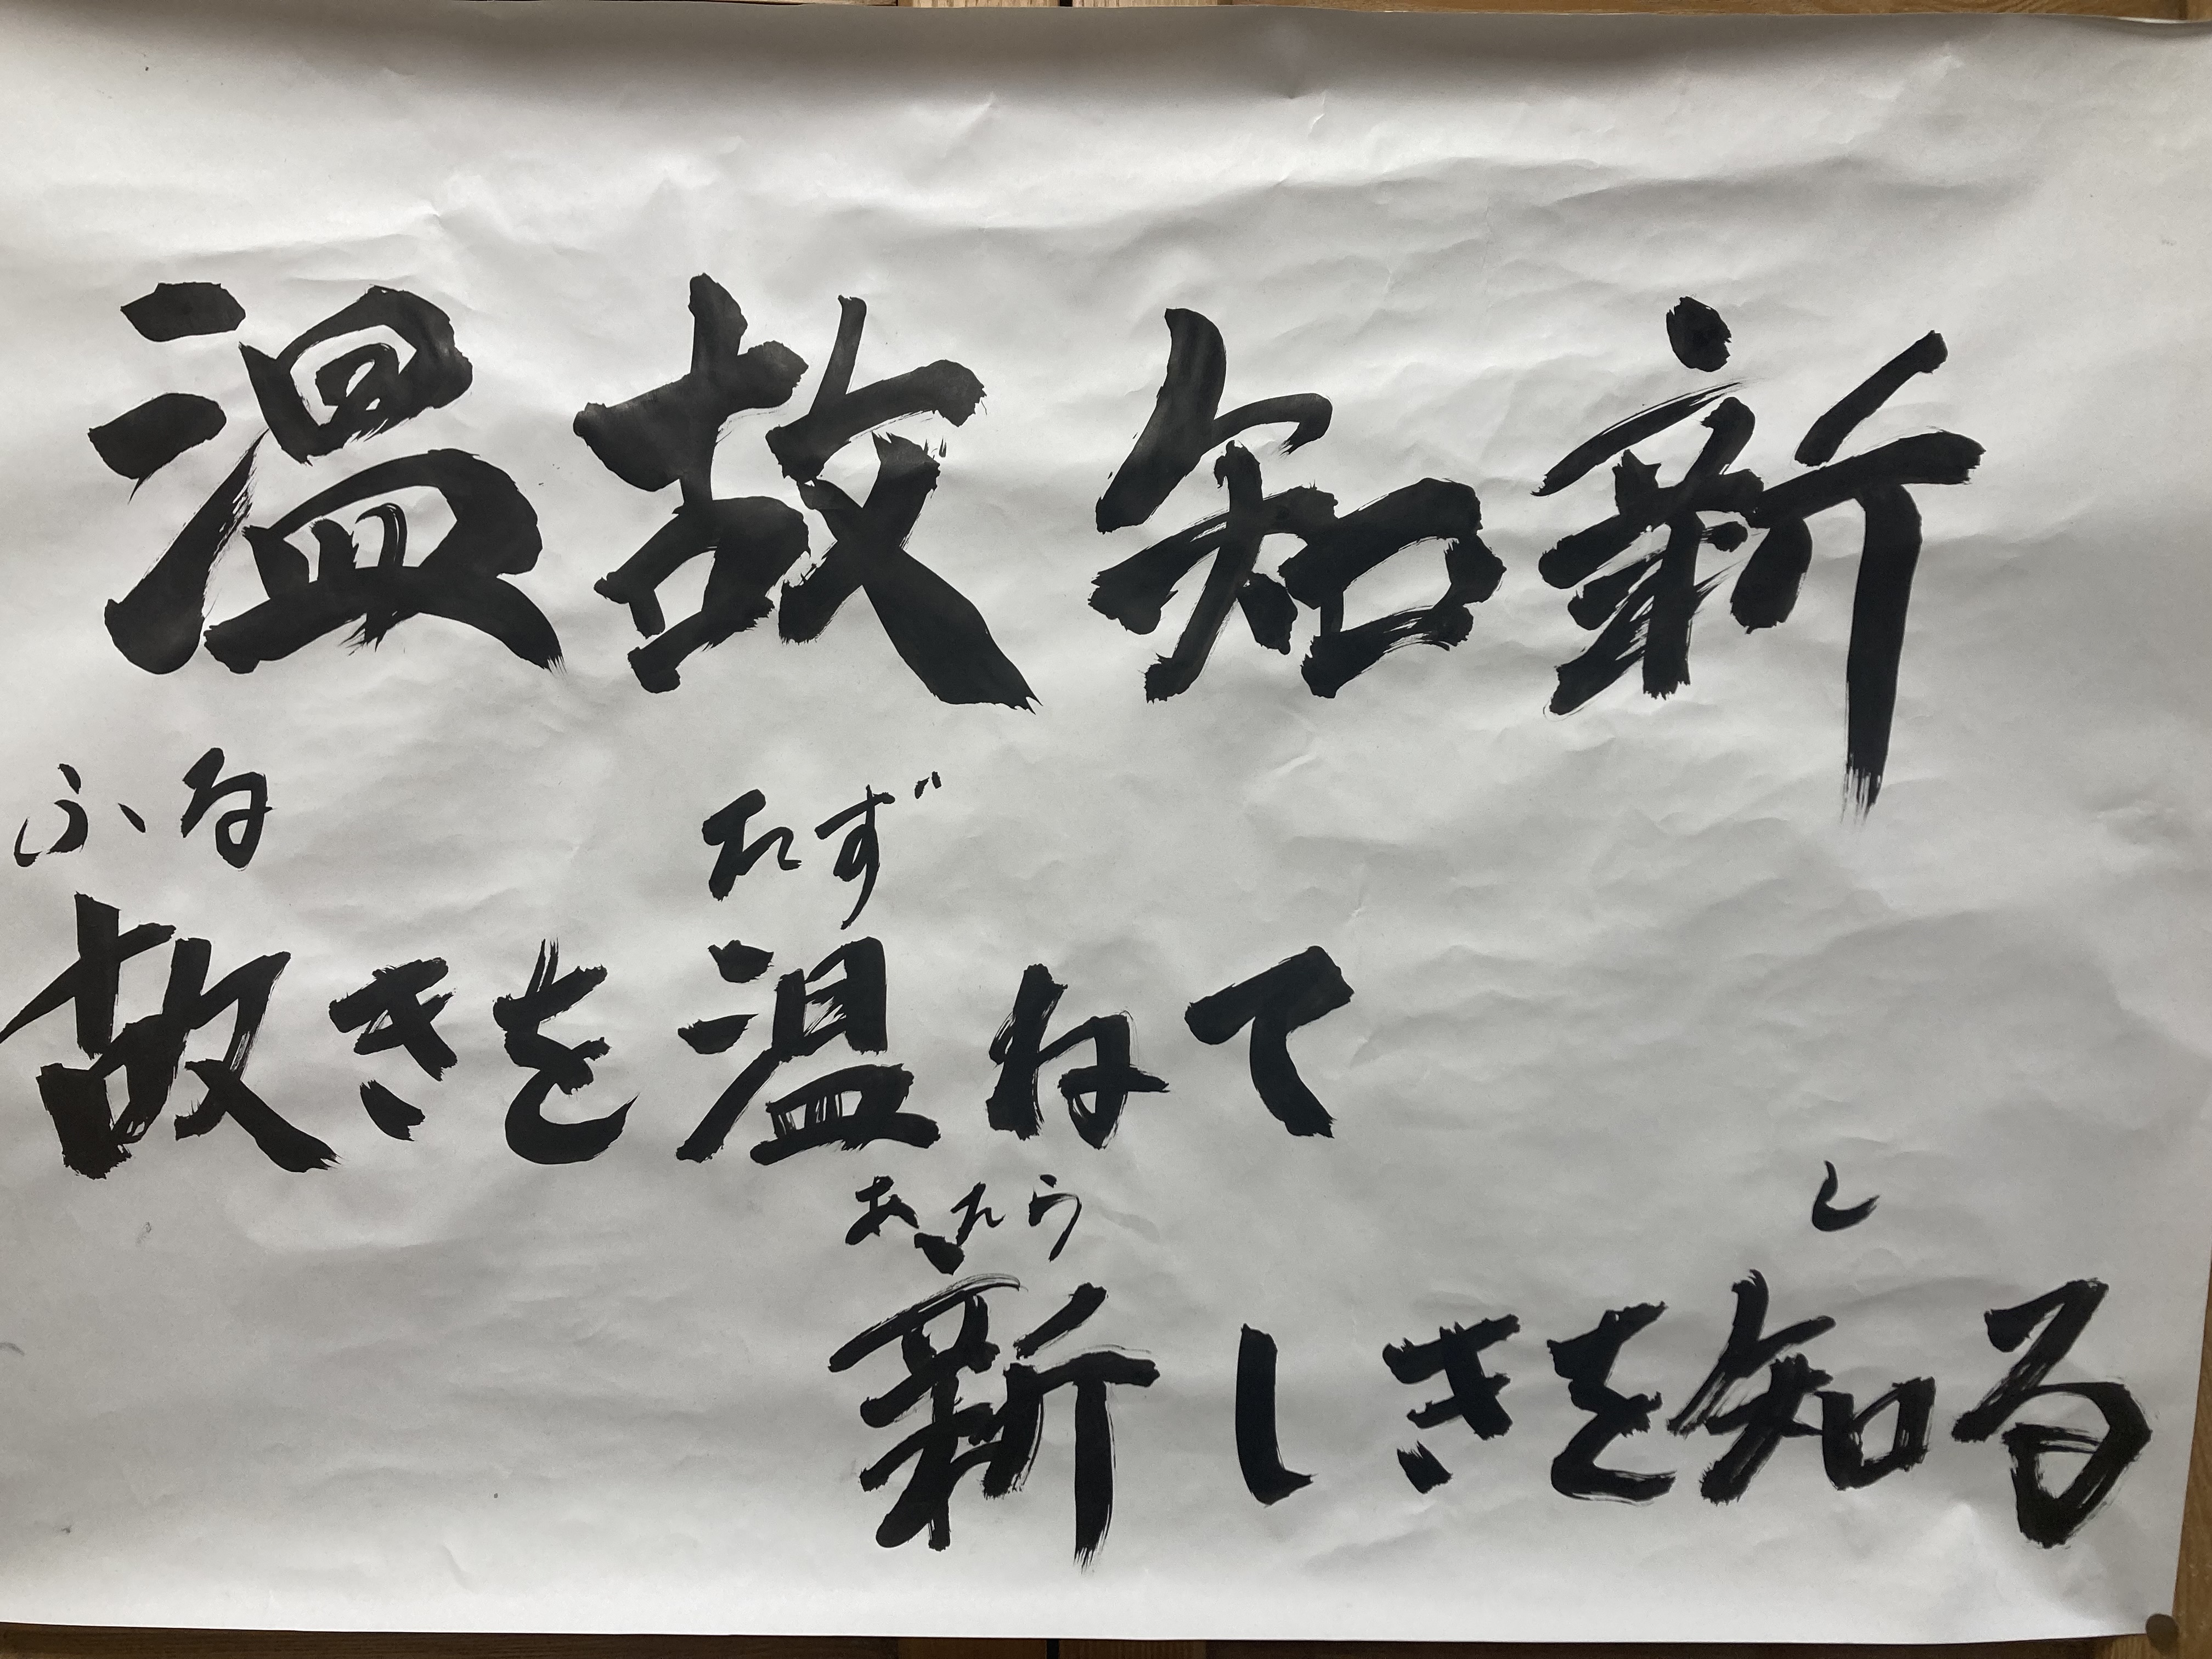 温故知新
ふる たず
故きを温ねて
あたら し
新しきを知る